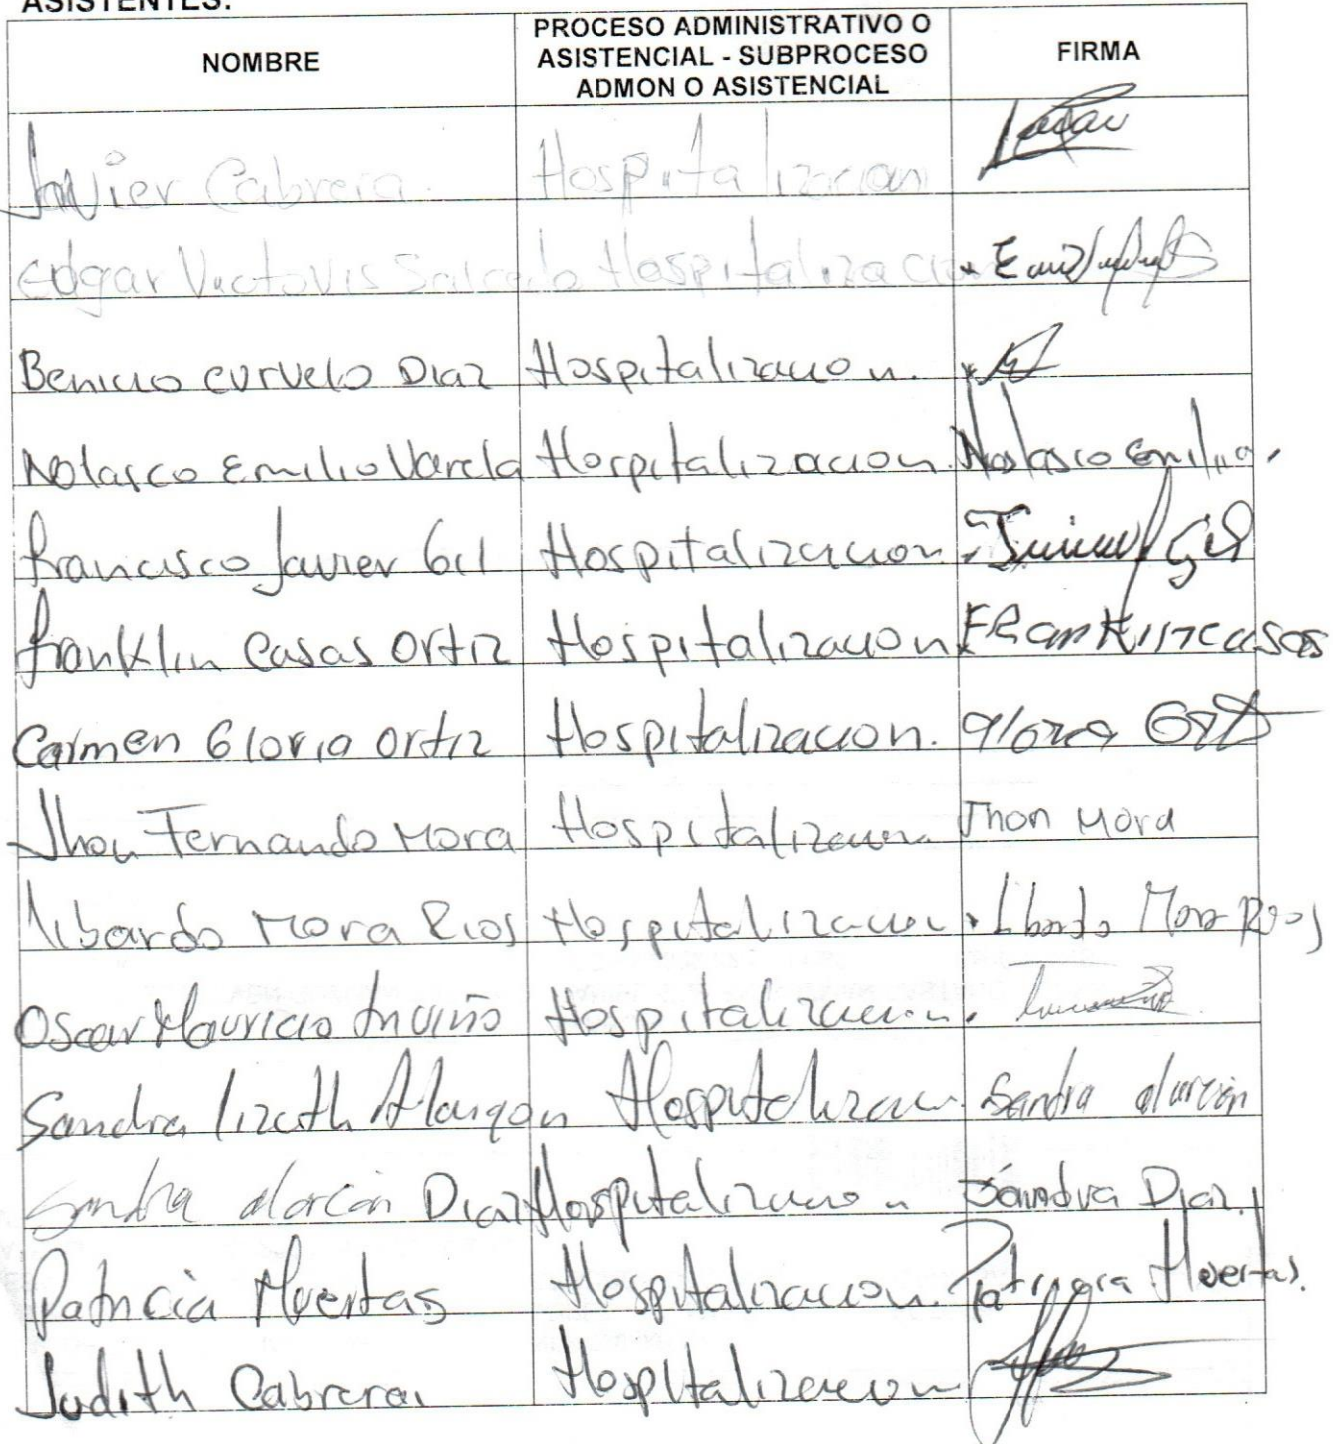 ASISTENTES:
NOMBRE PROCESO ADMINISTRATIVO O ASISTENCIAL - SUBPROCESO ADMON O ASISTENCIAL FIRMA
Javier Cabrera. Hospitalizacion
Edgar Salcedo Hospitalizacion
Benicio Curvelo Diaz Hospitalizacion.
Nolasco Emilio Varela Hospitalizacion. Nolasco Emilio.
francisco Javier Gil Hospitalizacion. Gil
franklin Casas Ortiz Hospitalizacion FRanklin casas
Carmen Gloria Ortiz Hospitalizacion. Gloria
Jhon Fernando Mora Hospitalizacion Jhon Mora
libardo Mora Rios Hospitalizacion. Libardo Mora Rios
Oscar Mauricio Hospitalizacion.
Sandra lizeth Alarcon Hospitalizacion Sandra alarcón
Sandra alarcón Diaz Hospitalizacion Sandra Diaz.
Patricia Huertas Hospitalizacion. Patricia Huertas.
Judith Cabrera. Hospitalizacion